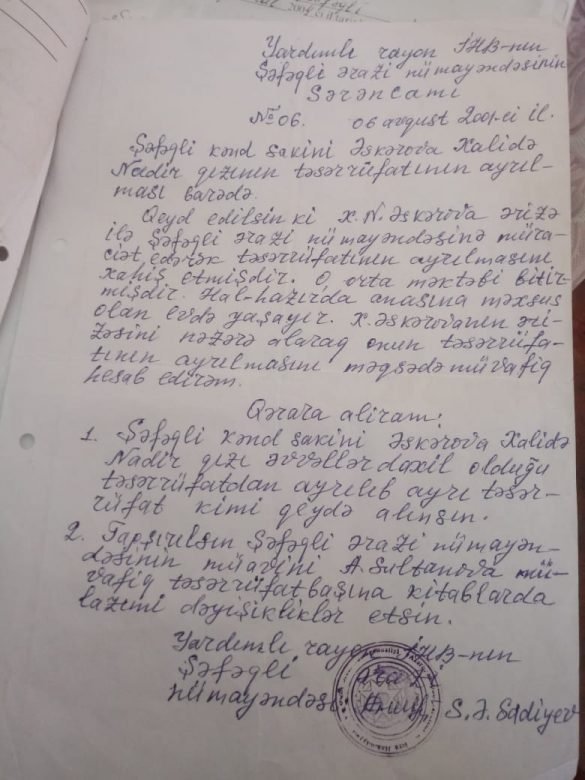 Yardımlı rayon İHB-nın
Şəfəqli ərazi nümayəndəsinin
Sərəncamı
№06. 06 avqust 2001-ci il.
Şəfəqli kənd sakini Əskərova Xalidə
Nadir qızının təsərrüfatının ayrıl-
ması barədə.
Qeyd edilsin ki X.N.Əskərova ərizə
ilə Şəfəqli ərazi nümayəndəsinə müra-
ciət edərək təsərrüfatının ayrılmasını
xahiş etmişdir. O, orta məktəbi bitir-
mişdir. Hal-hazırda anasına məxsus
olan evdə yaşayır. X.Əskərovanın əri-
zəsini nəzərə alaraq onun təsərrüfa-
tının ayrılmasını məqsədə müvafiq
hesab edirəm.
Qərara alıram:
1. Şəfəqli kənd sakini Əskərova Xalidə
Nadir qızı əvvəllər daxil olduğu
təsərrüfatdan ayrılıb ayrı təsər-
rüfat kimi qeydə alınsın.
2. Tapşırılsın Şəfəqli ərazi nümayən-
dəsinin müavini A.Sultanova mü-
vafiq təsərrüfatbaşına kitablarda
lazımi dəyişikliklər etsin.
Yardımlı rayon İHB-nın
Şəfəqli ərazi
nümayəndəsi S.Ə.Sadiyev